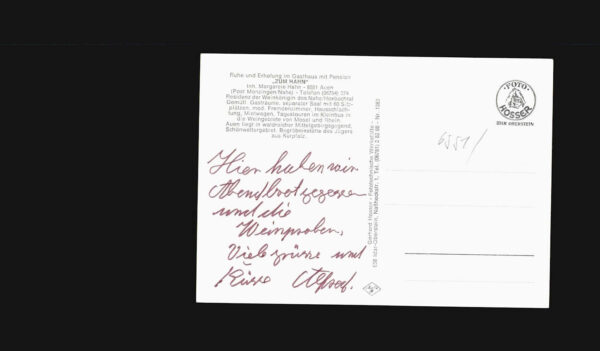 Ruhe und Erholung im Gasthaus mit Pension
„ZUM HAHN"
Inh. Margarete Hahn - 6551 Auen
(Post Monzingen/Nahe) - Telefon (06754) 274
Residenz der Weinkönigin des Nahe/Hoxbachtal
Gemütl. Gasträume, separater Saal mit 60 Sitz-
plätzen, mod. Fremdenzimmer, Hausschlach-
tung, Mietwagen, Tagestouren im Kleinbus in
die Weingebiete von Mosel und Rhein.
Auen liegt in waldreicher Mittelgebirgsgegend,
Schönwettergebiet. Begräbnisstätte des Jägers
aus Kurpfalz.
Hier haben wir
Abendbrot gegessen
und die
Weinproben,
Viele grüsse und
Küsse
FOTO
HOSSER
IDAR OBERSTEIN
6551/
Gerhard Hosser - Fototechnische Werkstätte
658 Idar-Oberstein, Tel.